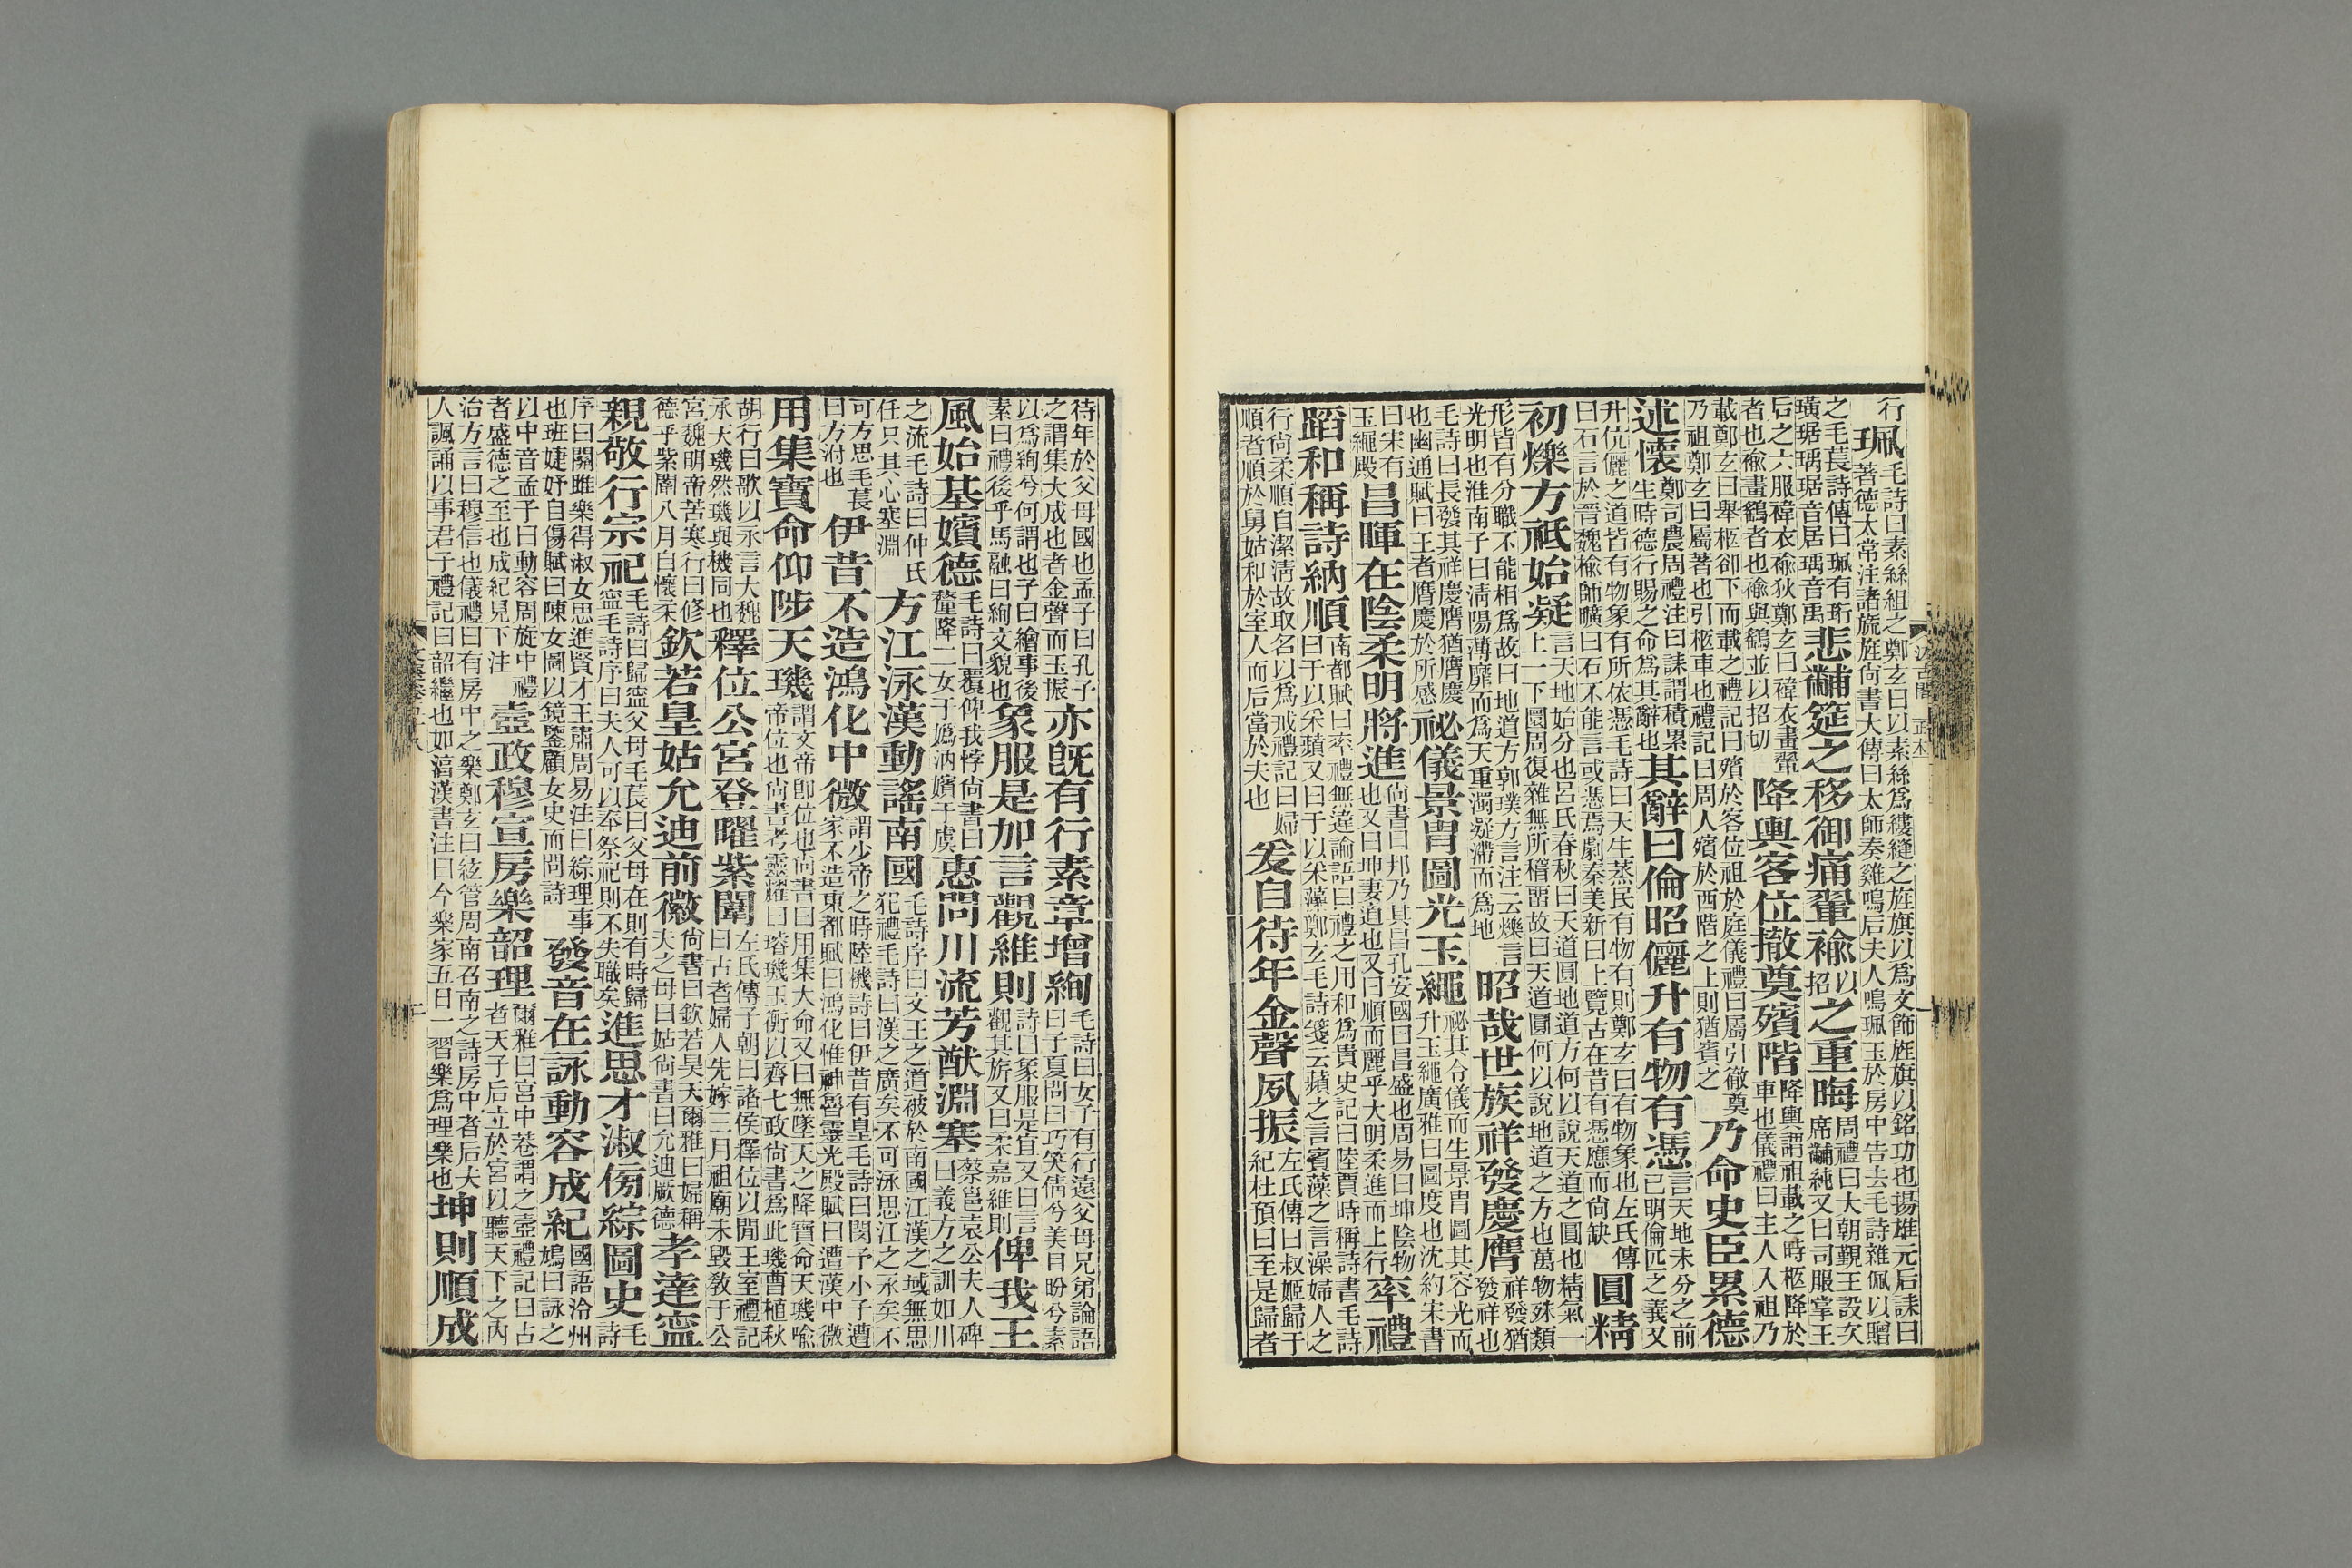 行
珮
毛詩曰素絲組之鄭玄曰以素絲爲縷縫之旌旗以爲文飾旌旗以銘功也揚雄元后誄曰
著德太常注諸旒旌尚書大傳曰太師奏雞鳴后夫人鳴珮玉於房中告去毛詩雜佩以贈
之毛萇詩傳曰珮有珩
璜琚瑀琚音居瑀音禹
悲黼筵之移御痛翬褕
以
招
之重晦
周禮曰大朝覲王設次
席黼純又曰司服掌王
后之六服褘衣褕狄鄭玄曰褘衣畫翬
者也褕畫鷂者也褕與鷂並以招切
降輿客位撤奠殯階
降輿謂祖載之時柩降於
車也儀禮曰主人入祖乃
載鄭玄曰舉柩卻下而載之禮記曰殯於客位祖於庭儀禮曰屬引徹奠
乃祖鄭玄曰屬著也引柩車也禮記曰周人殯於西階之上則猶賓之
乃命史臣累德
述懷
鄭司農周禮注曰誄謂積累
生時德行賜之命爲其辭也
其辭曰倫昭儷升有物有憑
言天地未分之前
已明倫匹之義又
升伉儷之道皆有物象有所依憑毛詩曰天生蒸民有物有則鄭玄曰有物象也左氏傳
曰石言於晉魏榆師曠曰石不能言或憑焉劇秦美新曰上覽古在昔有憑應而尚缺
圓精
初爍方祇始凝
言天地始分也呂氏春秋曰天道圓地道方何以說天道之圓也精氣一
上一下圜周復雜無所稽畱故曰天道圜何以說地道之方也萬物殊類
形皆有分職不能相爲故曰地道方郭璞方言注云爍言
光明也淮南子曰清陽薄靡而爲天重濁凝滯而爲地
昭哉世族祥發慶膺
祥發猶
發祥也
毛詩曰長發其祥慶膺猶膺慶
也幽通賦曰王者膺慶於所感
祕儀景胄圖光玉繩
祕其令儀而生景胄圖其容光而
升玉繩廣雅曰圖度也沈約宋書
曰宋有
玉繩殿
昌暉在陰柔明將進
尚書曰邦乃其昌孔安國曰昌盛也周易曰坤陰物
也又曰坤妻道也又曰順而麗乎大明柔進而上行
率禮
蹈和稱詩納順
南都賦曰率禮無違論語曰禮之用和爲貴史記曰陸賈時稱詩書毛詩
曰于以采蘋又曰于以采藻鄭玄毛詩箋云蘋之言賓藻之言澡婦人之
行尚柔順自潔清故取名以爲戒禮記曰婦
順者順於舅姑和於室人而后當於夫也
爰自待年金聲夙振
左氏傳曰叔姬歸于
紀杜預曰至是歸者
待年於父母國也孟子曰孔子
之謂集大成也者金聲而玉振
亦旣有行素章增絢
毛詩曰女子有行遠父母兄弟論語
曰子夏問曰巧笑倩兮美目盼兮素
以爲絢兮何謂也子曰繪事後
素曰禮後乎馬融曰絢文貌也
象服是加言觀維則
詩曰象服是宜又曰言
觀其旂又曰柔嘉維則
俾我王
風始基嬪德
毛詩曰覆俾我悖尚書曰
釐降二女于嬀汭嬪于虞
惠問川流芳猷淵塞
蔡邕袁公夫人碑
曰義方之訓如川
之流毛詩曰仲氏
任只其心塞淵
方江泳漢動謠南國
毛詩序曰文王之道被於南國江漢之域無思
犯禮毛詩曰漢之廣矣不可泳思江之永矣不
可方思毛萇
曰方泭也
伊昔不造鴻化中微
謂少帝之時陸機詩曰伊昔有皇毛詩曰閔予小子遭
家不造東都賦曰鴻化惟神魯靈光殿賦曰遭漢中微
用集寶命仰陟天璣
謂文帝卽位也尚書曰用集大命又曰無墜天之降寶命天璣喻
帝位也尚書考靈耀曰璿璣玉衡以齊七政尚書爲此璣曹植秋
胡行曰歌以永言大魏
承天璣然璣與機同也
釋位公宮登曜紫闈
左氏傳子朝曰諸侯釋位以閒王室禮記
曰古者婦人先嫁三月祖廟未毀教于公
宮魏明帝苦寒行曰修
德乎紫闈八月自懷柔
欽若皇姑允迪前徽
尚書曰欽若昊天爾雅曰婦稱
夫之母曰姑尚書曰允迪厥德
孝達寍
親敬行宗祀
毛詩曰歸寍父母毛萇曰父母在則有時歸
寍毛詩序曰夫人可以奉祭祀則不失職矣
進思才淑傍綜圖史
毛
詩
序曰關雎樂得淑女思進賢才王肅周易注曰綜理事
也班婕妤自傷賦曰陳女圖以鏡鑒顧女史而問詩
發音在詠動容成紀
國語泠州
鳩曰詠之
以中音孟子曰動容周旋中禮
者盛德之至也成紀見下注
壼政穆宣房樂韶理
爾雅曰宮中巷謂之壼禮記曰古
者天子后立於宮以聽天下之內
治方言曰穆信也儀禮曰有房中之樂鄭玄曰絃管周南召南之詩房中者后夫
人諷誦以事君子禮記曰韶繼也如湻漢書注曰今樂家五日一習樂爲理樂也
坤則順成